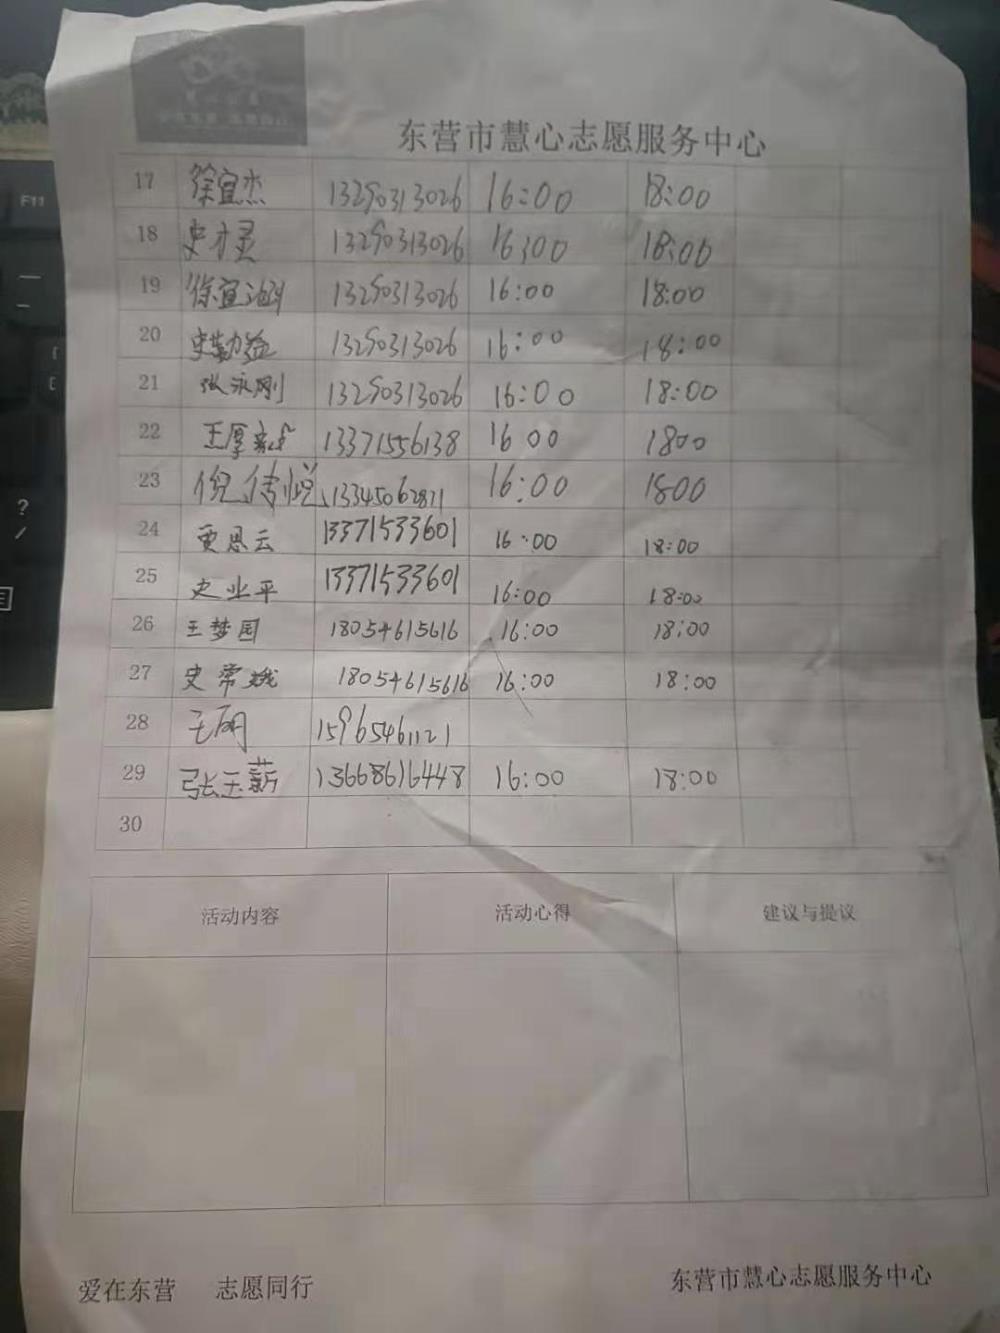 东营市慧心志愿服务中心
17 徐宜杰 13290313026 16:00 18:00
18 史才灵 13290313026 16:00 18:00
19 徐宜 13290313026 16:00 18:00
20 史勤益 13290313026 16:00 18:00
21 张永刚 13290313026 16:00 18:00
22 王厚 13371556138 16 00 1800
23 倪传悦 13345062871 16:00 1800
24 贾恩云 13371533601 16:00 18:00
25 史业平 13371533601 16:00 18:00
26 王梦园 18054615616 16:00 18:00
27 史常娥 18054615616 16:00 18:00
28 王丽 15965461121
29 张玉薪 13668616448 16:00 18:00
30
活动内容 活动心得 建议与提议
爱在东营 志愿同行 东营市慧心志愿服务中心